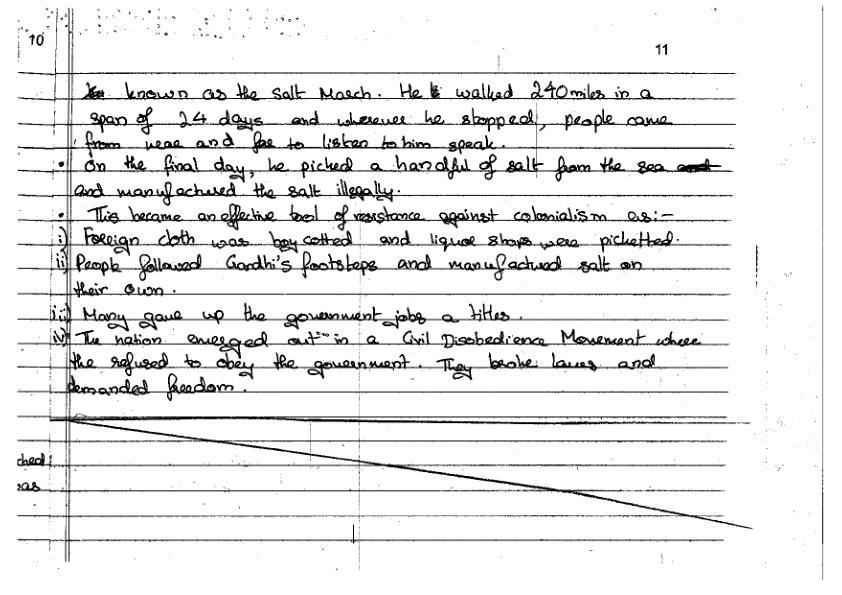 10
11
known as the Salt March. He walked 240 miles in a
span of 24 days and wherever he stopped, people came
from near and far to listen to him speak.
• On the final day, he picked a handful of salt from the sea
and manufactured the salt illegally.
• This became an effective tool of resistance against colonialism as:-
i) Foreign cloth was boycotted and liquor shops were picketted.
ii) People followed Gandhi's footsteps and manufactured salt on
their own.
iii) Many gave up the government jobs a titles.
iv) The nation emerged out in a Civil Disobedience Movement where
the refused to obey the government. They broke laws and
demanded freedom.
ched
as